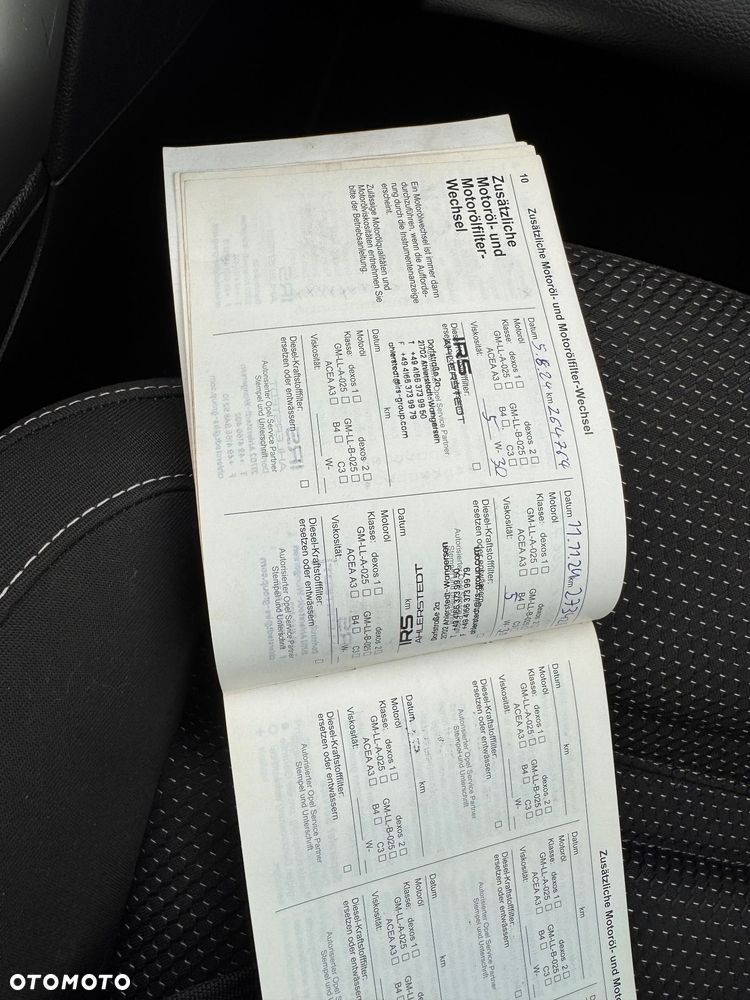 10
Zusätzliche Motoröl- und Motorölfilter-Wechsel
Zusätzliche
Motoröl- und
Motorölfilter-
Wechsel
Ein Motorölwechsel ist immer dann
durchzuführen, wenn die Aufforde-
rung durch die Instrumentenanzeige
erscheint.
Zulässige Motorölqualitäten und
Motorölviskositäten entnehmen Sie
bitte der Betriebsanleitung.
Datum 5.8.24 km 264764
Motoröl
Klasse: dexos 1 ☐ dexos 2 ☐
GM-LL-A-025 ☐ GM-LL-B-025 ☐
ACEA A3 ☐ B4 ☐ C3 ☐
Viskosität: 5 W- 30
IRS
AHLERSTEDT
Dorfstraße 2a
21702 Ahlerstedt-Wangersen
T +49 4166 373 99 50
F +49 4166 373 99 79
ahlerstedt@irs-group.com
Datum km
Motoröl
Klasse: dexos 1 ☐ dexos 2 ☐
GM-LL-A-025 ☐ GM-LL-B-025 ☐
ACEA A3 ☐ B4 ☐ C3 ☐
Viskosität: W-
Diesel-Kraftstofffilter:
ersetzen oder entwässern ☐
Autorisierter Opel Service Partner
Stempel und Unterschrift
Datum 11.11.24 km
Motoröl
Klasse: dexos 1 ☐ dexos 2 ☐
GM-LL-A-025 ☐ GM-LL-B-025
ACEA A3 ☐ B4 ☐ C3
Viskosität: 5 W-
Diesel-Kraftstofffilter:
ersetzen oder
IRS
AHLERSTEDT
Dorfstraße 2a
Datum km
Motoröl
Klasse: dexos 1 ☐ dexos 2 ☐
GM-LL-A-025 ☐ GM-LL-B-025 ☐
ACEA A3 ☐ B4 ☐ C3 ☐
Viskosität: W-
Diesel-Kraftstofffilter:
ersetzen oder entwässern ☐
Autorisierter Opel Service Partner
Stempel und Unterschrift
Zusätzliche Motoröl- und Mot
Datum km
Motoröl
Klasse: dexos 1 ☐ dexos 2 ☐
GM-LL-A-025 ☐ GM-LL-B-025 ☐
ACEA A3 ☐ B4 ☐ C3 ☐
Viskosität: W-
Diesel-Kraftstofffilter:
ersetzen oder entwässern ☐
Autorisierter Opel Service Partner
Stempel und Unterschrift
Datum km
Motoröl
Klasse: dexos 1 ☐ dexos 2 ☐
GM-LL-A-025 ☐ GM-LL-B-025 ☐
ACEA A3 ☐ B4 ☐ C3 ☐
Viskosität: W-
Diesel-Kraftstofffilter:
ersetzen oder entwässern ☐
Autorisierter Opel Service Partner
Stempel und Unterschrift
Datum km
Motoröl
Klasse: dexos 1 ☐ dexos 2 ☐
GM-LL-A-025 ☐ GM-LL-B-025 ☐
ACEA A3 ☐ B4 ☐ C3 ☐
Viskosität: W-
Diesel-Kraftstofffilter:
ersetzen oder entwässern
Autorisierter Opel Service Partner
Stempel und Unterschrift
Datum
Motoröl
Klasse: dexos 1 ☐
GM-LL-A-025 ☐
ACEA A3 ☐
Viskosität:
Diesel-Kraftstofffilter:
ersetzen oder entwässern
OTOMOTO